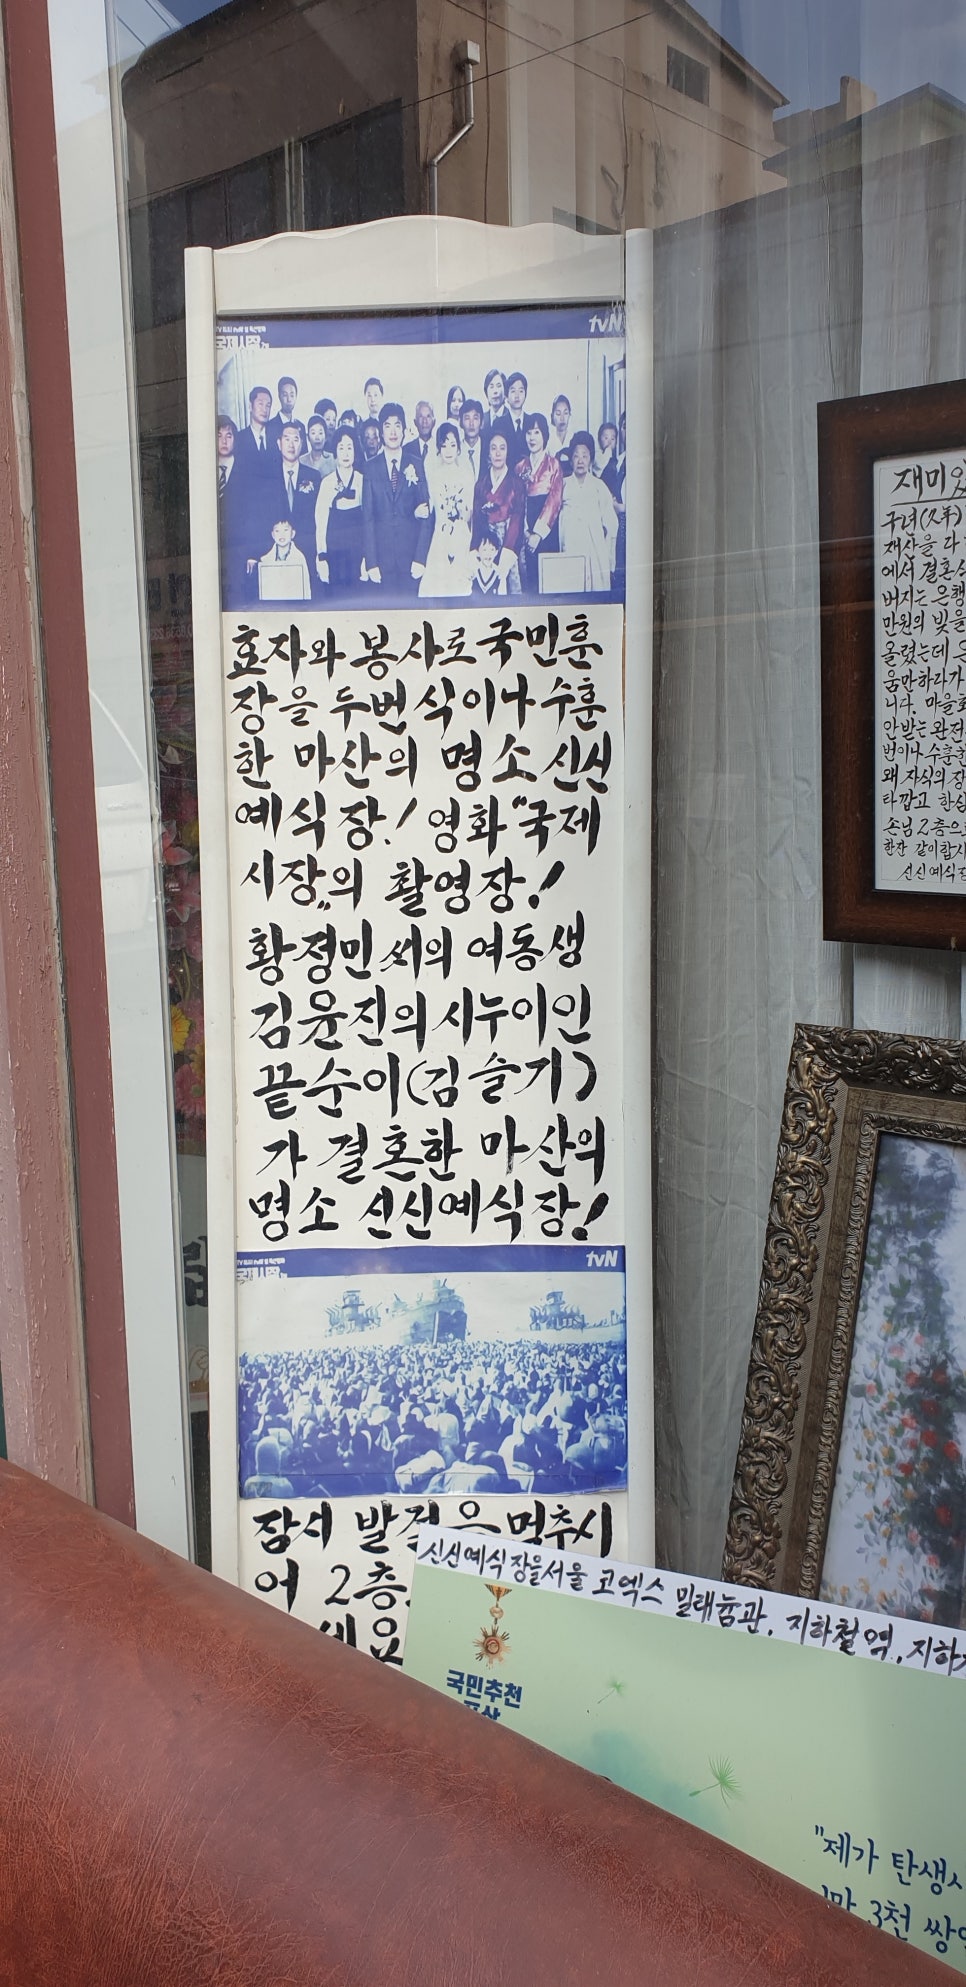 tvN
국제시장
효자와 봉사로 국민훈
장을 두번씩이나 수훈
한 마산의 명소 신신
예식장! 영화 "국제
시장"의 촬영장!
황정민 씨의 여동생
김윤진의 시누이인
끝순이(김슬기)
가 결혼한 마산의
명소 신신예식장!
tvN
국제시장
잠시 발걸음 멈추시
어 2층
세요
신신예식장을 서울 코엑스 밀래늄관, 지하철역, 지하
국민추천
포상
"제가 탄생
1만 3천 쌍
재미있
구년(久年)
재산을 다
에서 결혼식
버지는 은행
만원의 빚을
올렸는데
움만하라가
니다. 마을
안받는 완전
번이나 수훈한
왜 자식의 장
타깝고 한심
손님 2층으로
한잔 같이합시
신신예식장